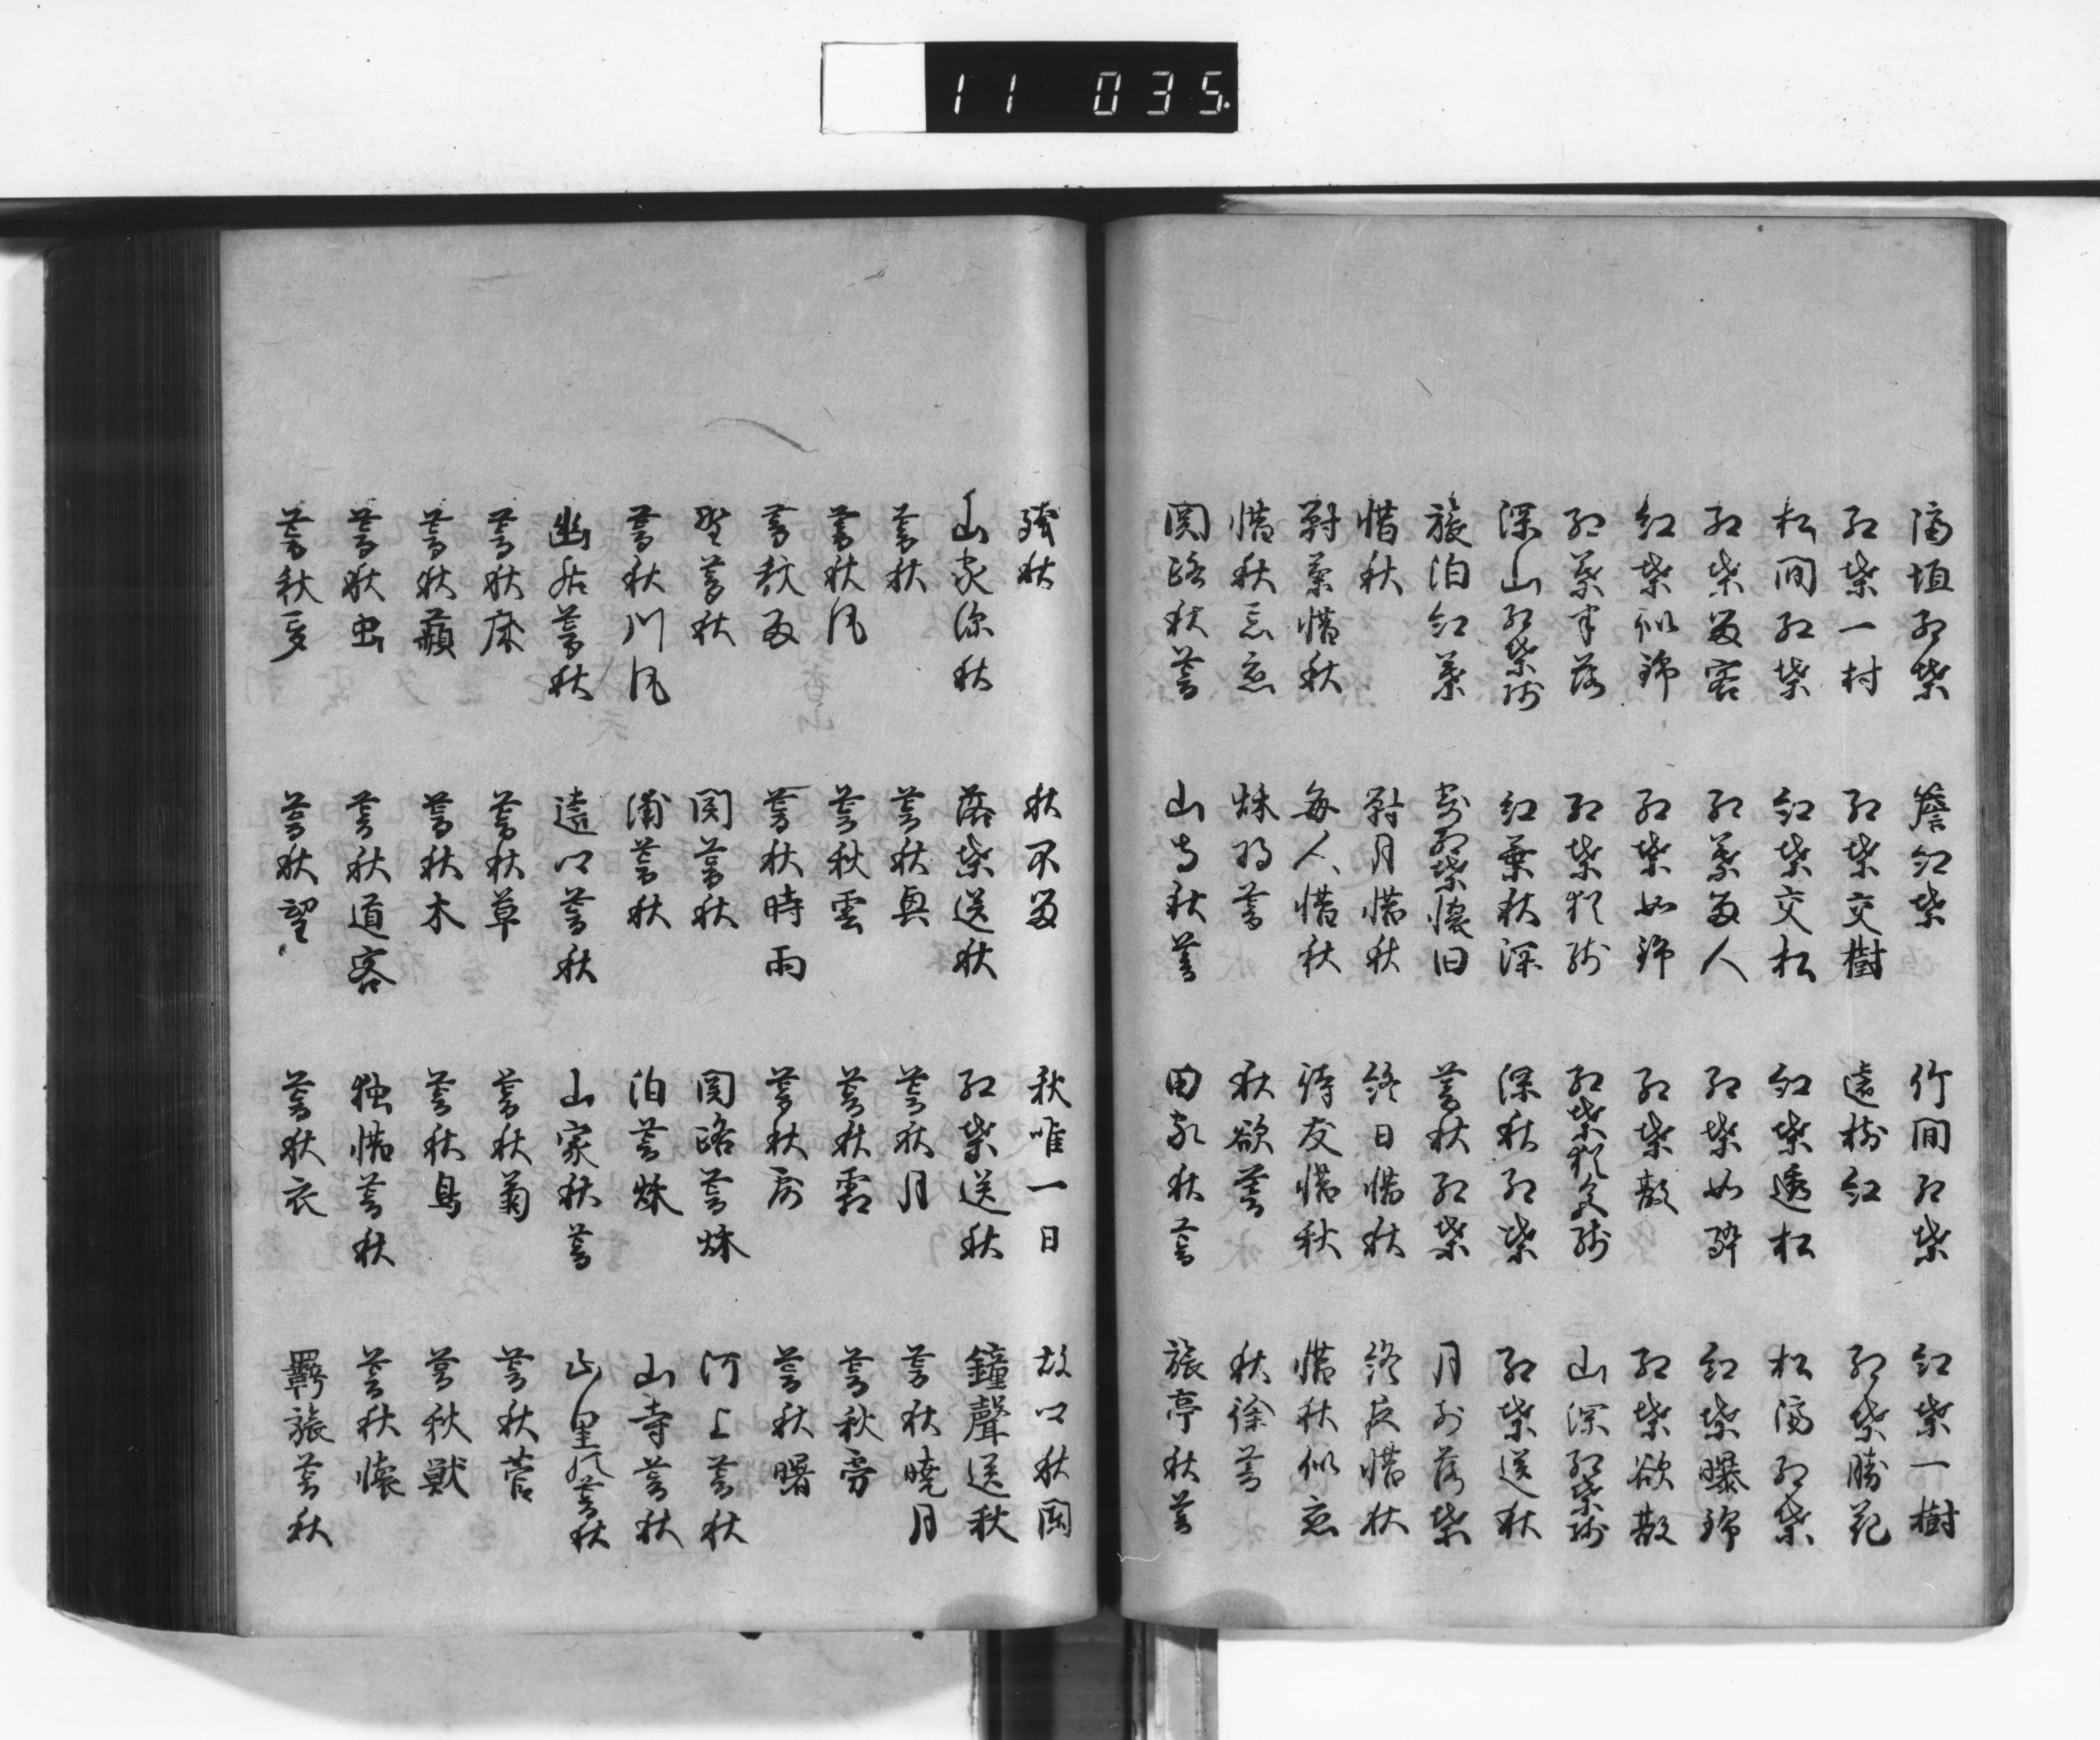 11 035
隔垣紅葉 簷紅葉 竹間紅葉 紅葉一樹
紅葉一村 紅葉交樹 遠樹紅 紅葉勝花
松間紅葉 紅葉交松 紅葉透松 松隔紅葉
紅葉留客 紅葉留人 紅葉如酔 紅葉曝錦
紅葉似錦 紅葉如錦 紅葉散 紅葉欲散
紅葉半落 紅葉猶残 紅葉猶又残 山深紅葉残
深山紅葉残 紅葉秋深 深秋紅葉 紅葉送秋
旅泊紅葉 寄紅葉懐旧 暮秋紅葉 月前落葉
惜秋 対月惜秋 終日惜秋 終夜惜秋
対菊惜秋 毎人惜秋 待友惜秋 惜秋似恋
惜秋忘恋 秌将暮 秋欲暮 秋徐暮
関路秋暮 山寺秋暮 田家秋暮 旅亭秋暮
残秋 秋不留 秋唯一日 故郷秋闌
山家深秋 落葉送秋 紅葉送秋 鐘聲送秋
暮秋 暮秋興 暮秋月 暮秋暁月
暮秋風 暮秋雲 暮秋霜 暮秋雰
暮秋雨 暮秋時雨 暮秋雰 暮秋曙
野暮秋 関暮秋 関路暮秌 河上暮秋
暮秋川風 浦暮秋 泊暮秌 山寺暮秋
幽居暮秋 遠郷暮秋 山家秋暮 山里風暮秋
暮秋床 暮秋草 暮秋菊 暮秋菅
暮秋蘋 暮秋木 暮秋鳥 暮秋獣
暮秋虫 暮秋道客 独惜暮秋 暮秋懐
暮秋夢 暮秋望 暮秋衣 羇旅暮秋